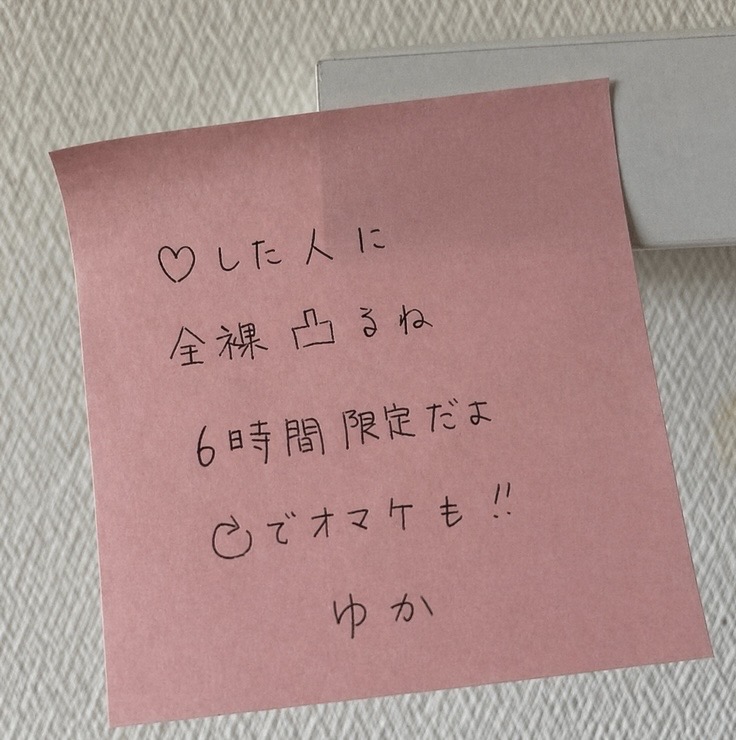 ♡した人に
全裸凸るね
6時間限定だよ
↻でオマケも!!
ゆか